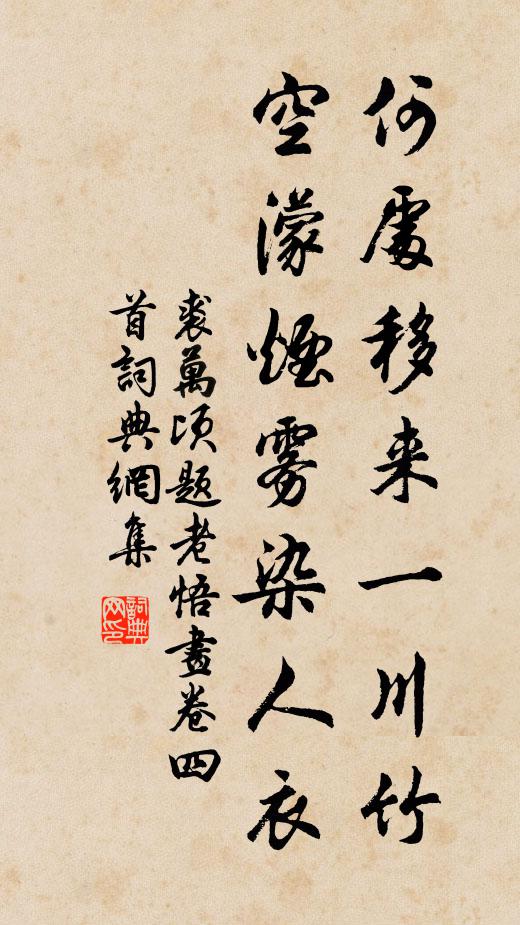 何處移来一川竹
空濛煙雾染人衣
裘萬頃題老悟畫卷四
首詞典網集
詞典网印